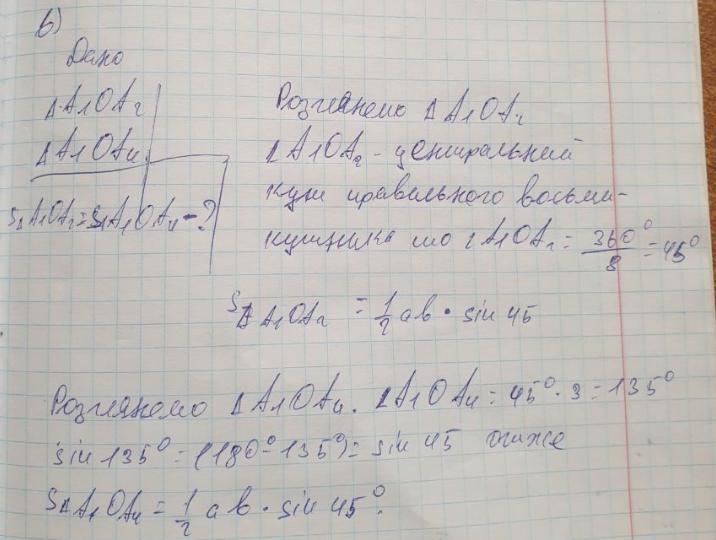 в)
Дано
Δ A₁OA₂
Δ A₁OA₄
S Δ A₁OA₂ = S Δ A₁OA₄ - ?
Розглянемо Δ A₁OA₂
∠A₁OA₂ - центральний
кут правильного восьми-
кутника то ∠A₁OA₂ = 360°/8 = 45°
S Δ A₁OA₂ = 1/2 ab · sin 45
Розглянемо Δ A₁OA₄. ∠A₁OA₄ = 45° · 3 = 135°
sin 135° = (180° - 135°) = sin 45 отже
S Δ A₁OA₄ = 1/2 ab · sin 45°.